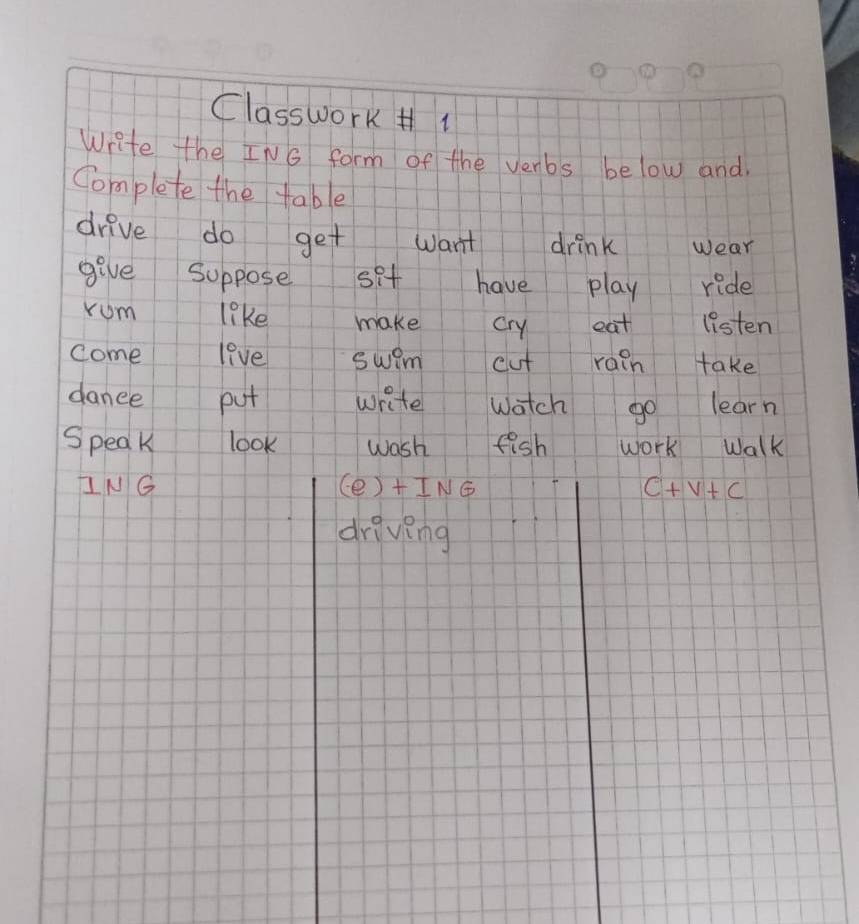 Classwork # 1
Write the ING form of the verbs below and.
Complete the table
drive do get want drink wear
give suppose sit have play ride
rum like make cry eat listen
come live swim cut rain take
dance put write watch go learn
Speak look wash fish work walk
ING (e)+ING C+V+C
driving